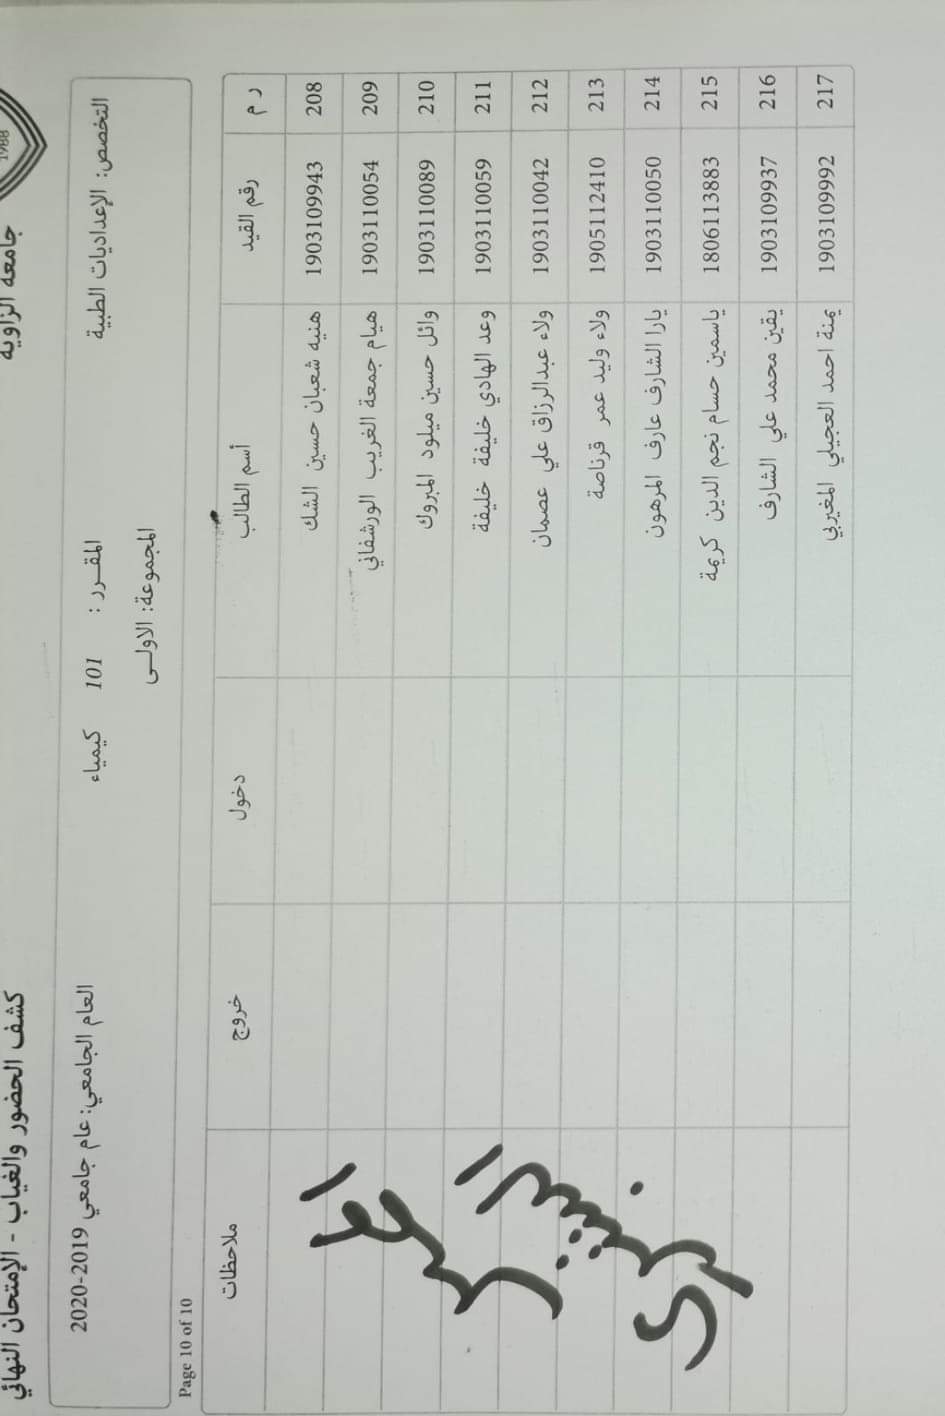 1988
جامعة الزاوية
كشف الحضور والغياب - الإمتحان النهائي
التخصص: الإعداديات الطبية
المقرر : 101 كيمياء
العام الجامعي: عام جامعي 2019-2020
المجموعة: الاولى
Page 10 of 10
ر م رقم القيد أسم الطالب دخول خروج ملاحظات
208 1903109943 هنيه شعبان حسين الشك
209 1903110054 هيام جمعة الغريب الورشفاني
210 1903110089 وائل حسين ميلود المبروك
211 1903110059 وعد الهادي خليفة خليفة
212 1903110042 ولاء عبدالرزاق علي عصمان
213 1905112410 ولاء وليد عمر قرناصة
214 1903110050 يارا الشارف عارف المرهون
215 1806113883 ياسمين حسام نجم الدين كريمة
216 1903109937 يقين محمد علي الشارف
217 1903109992 يمنة احمد العجيلي المغيربي